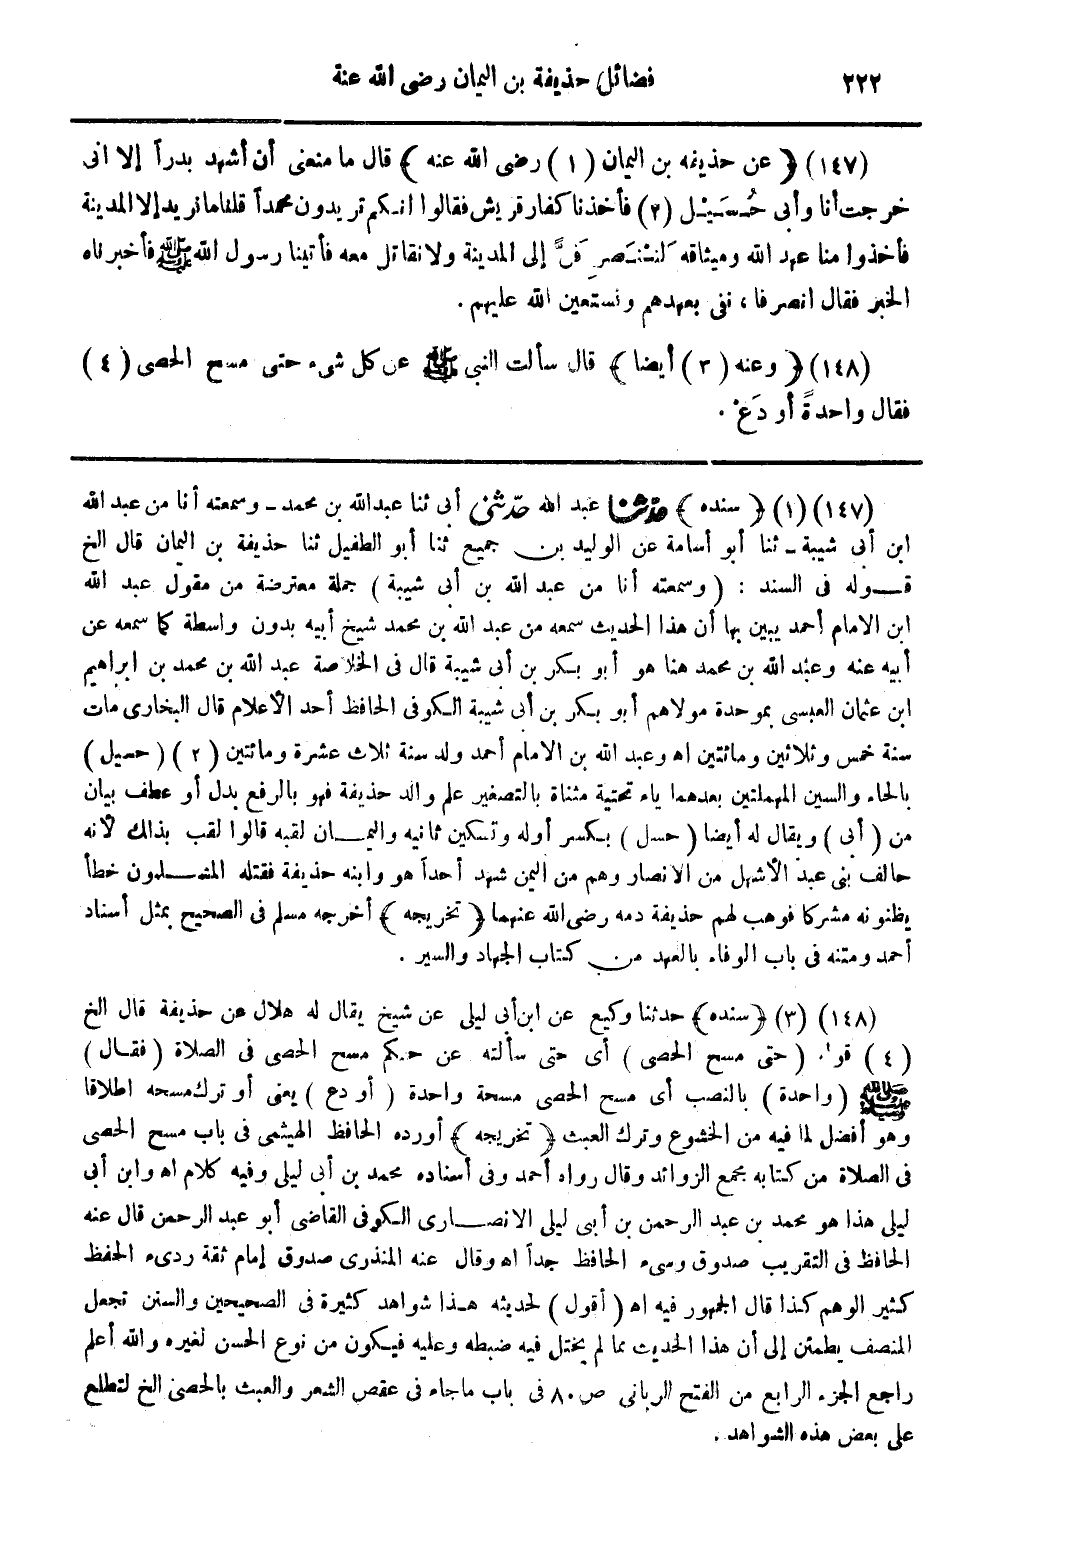 ٢٢٢ فضائل حذيفة بن اليمان رضى الله عنة
(١٤٧) ﴿ عن حذيفه بن اليمان (١) رضى الله عنه ﴾ قال ما منعنى أن أشهد بدراً إلا انى
خرجت أنا وأبى حُسَيْل (٢) فأخذنا كفار قريش فقالوا انكم تريدون محمداً قلنا ما نريد إلا المدينة
فأخذوا منا عهد الله وميثاقه لننصرفنَّ إلى المدينة ولا نقاتل معه فأتينا رسول الله ﷺ فأخبرناه
الخبر فقال انصرفا ، نفى بعهدهم ونستعين الله عليهم .
(١٤٨) ﴿ وعنه (٣) أيضا ﴾ قال سألت النبي ﷺ عن كل شىء حتى مسح الحصى (٤)
فقال واحدةً أو دَعْ .
(١٤٧) (١) ﴿ سنده ﴾ حدثنا عبد الله حدّثنى أبى ثنا عبدالله بن محمد ـ وسمعته أنا من عبد الله
ابن أبى شيبة ـ ثنا أبو أسامة عن الوليد بن جميع ثنا أبو الطفيل ثنا حذيفة بن اليمان قال الخ
قـوله فى السند : ( وسمعته أنا من عبد الله بن أبى شيبة ) جملة معترضة من مقول عبد الله
ابن الامام أحمد يبين بها أن هذا الحديث سمعه من عبد الله بن محمد شيخ أبيه بدون واسطة كما سمعه عن
أبيه عنه وعبد الله بن محمد هنا هو أبو بكر بن أبى شيبة قال فى الخلاصة عبد الله بن محمد بن ابراهيم
ابن عثمان العبسى بموحدة مولاهم أبو بكر بن أبى شيبة الكوفى الحافظ أحد الأعلام قال البخارى مات
سنة خمس وثلاثين ومائتين اه وعبد الله بن الامام أحمد ولد سنة ثلاث عشرة ومائتين (٢) (حسيل)
بالحاء والسين المهملتين بعدهما ياء تحتية مثناة بالتصغير علم والد حذيفة فهو بالرفع بدل أو عطف بيان
من ( أبى ) ويقال له أيضا ( حسل ) بكسر أوله وتسكين ثانيه واليمـان لقبه قالوا لقب بذالك لأنه
حالف بنى عبد الأشهل من الانصار وهم من اليمن شهد أحداً هو وابنه حذيفة فقتله المسلمون خطأ
يظنونه مشركا فوهب لهم حذيفة دمه رضى الله عنهما ﴿ تخريجه ﴾ أخرجه مسلم فى الصحيح بمثل أسناد
أحمد ومتنه فى باب الوفاء بالعهد من كتاب الجهاد والسير .
(١٤٨) (٣) ﴿سنده﴾ حدثنا وكيع عن ابن أبى ليلى عن شيخ يقال له هلال عن حذيفة قال الخ
(٤) قوله ( حتى مسح الحصى ) أى حتى سألته عن حكم مسح الحصى فى الصلاة ( فقـال )
ﷺ ( واحدة ) بالنصب أى مسح الحصى مسحة واحدة ( أو دع ) يعنى أو ترك مسحه اطلاقا
وهو أفضل لما فيه من الخشوع وترك العبث ﴿ تخريجه ﴾ أورده الحافظ الهيثمى فى باب مسح الحصى
فى الصلاة من كتابه مجمع الزوائد وقال رواه أحمد وفى أسناده محمد بن أبى ليلى وفيه كلام اه وابن أبى
ليلى هذا هو محمد بن عبد الرحمن بن أبى ليلى الانصـارى الكوفى القاضى أبو عبد الرحمن قال عنه
الحافظ فى التقريب صدوق وسىء الحافظ جداً اه وقال عنه المنذرى صدوق إمام ثقة ردىء الحفظ
كثير الوهم كذا قال الجمهور فيه اه ( أقول ) لحديثه هذا شواهد كثيرة فى الصحيحين والسنن تجعل
المنصف يطمئن إلى أن هذا الحديث مما لم يختل فيه ضبطه وعليه فيكون من نوع الحسن لغيره والله أعلم
راجع الجزء الرابع من الفتح الربانى ص ٨٠ فى باب ماجاء فى عقص الشعر والعبث بالحصى الخ لتطلع
على بعض هذه الشواهد .